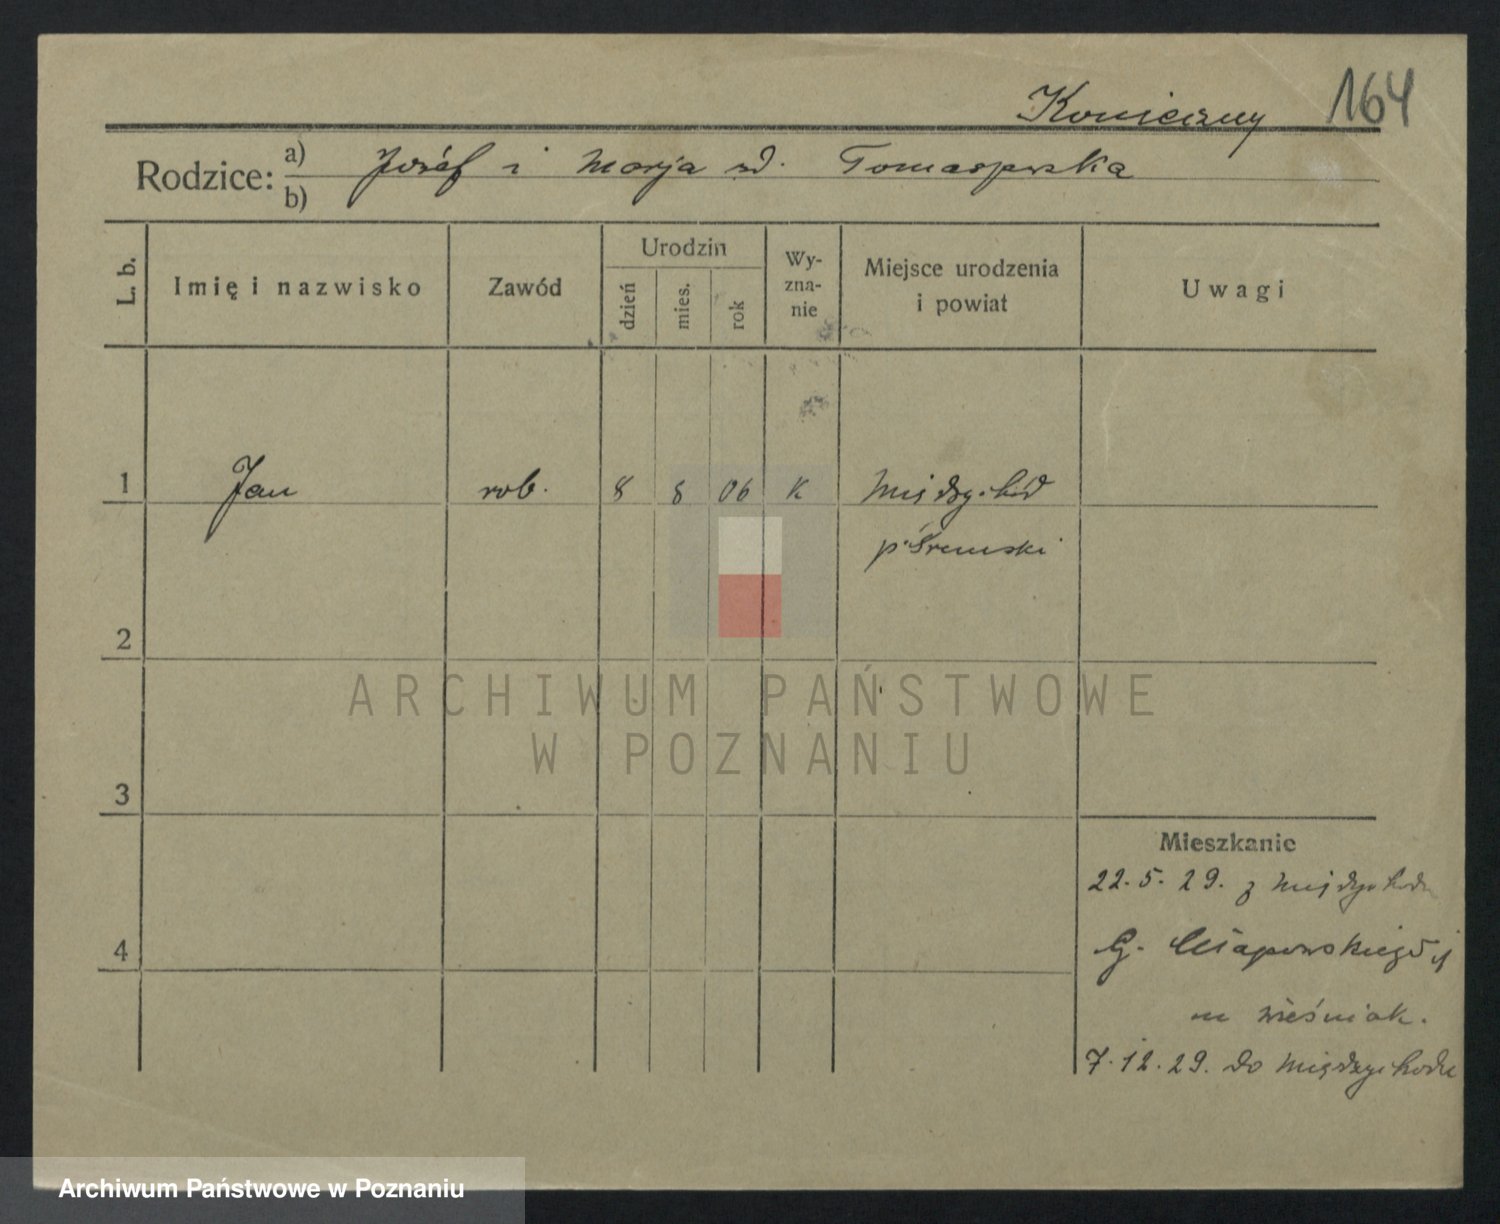 Konieczny 164
Rodzice: a) Józef i Marja zd. Tomaszewska
b)
L. b.
Imię i nazwisko
Zawód
Urodzin
dzień
mies.
rok
Wy-
zna-
nie
Miejsce urodzenia
i powiat
Uwagi
1 Jan rob. 8 8 06 K Międzychód
p. Śremski
2
ARCHIWUM PAŃSTWOWE
W POZNANIU
3
Mieszkanie
22.5.29. z Międzychodu
4
G. Chłapowskiego
m Wieśniak.
7.12.29. do Międzychodu
Archiwum Państwowe w Poznaniu